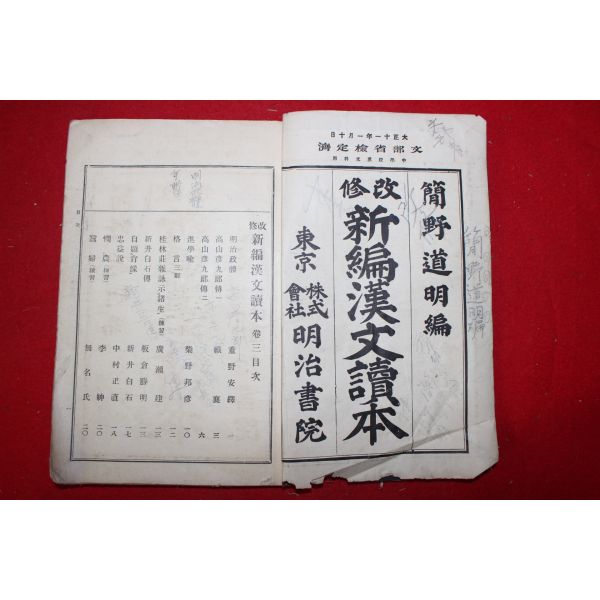 大正十一年一月十日
文部省檢定濟
中學校漢文科用
簡野道明編
改修
新編漢文讀本
東京
株式會社
明治書院
簡野道明
改修 新編漢文讀本 卷三目次
明治政體 重野安繹 一
高山彥九郎傳一 賴襄 三
高山彥九郎傳二 六
進學喻 柴野邦彥 一〇
格言三則 一二
桂林莊雜詠示諸生(練習) 廣瀨建 一三
新井白石傳 板倉勝明 一三
自題肖像 新井白石 一七
忠益說 中村正直 一八
憫農(練習) 李紳 二〇
蠶婦(練習) 無名氏 二〇
目次